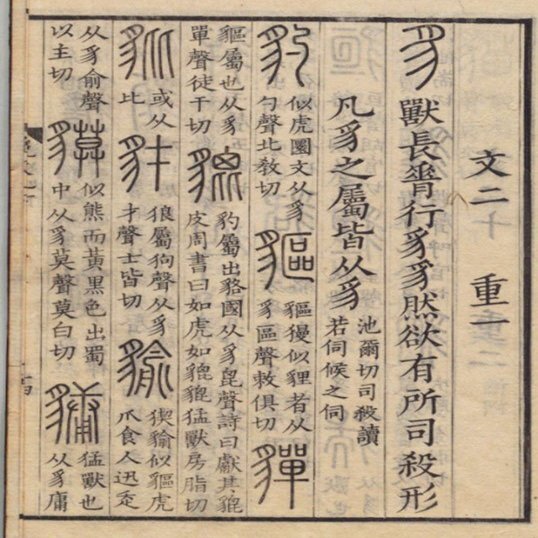 文二 重一
豸 獸長脊行豸豸然欲有所司殺形
凡豸之屬皆从豸 池爾切司殺讀若伺候之伺
豹 似虎圜文从豸勺聲北教切 貙 貙獌似貍者从豸區聲敕俱切 貚
貙屬也从豸單聲徒干切 貔 豹屬出貉國从豸𣬉聲詩曰獻其貔皮周書曰如虎如貔貔猛獸房脂切
豼 或从比 豺 狼屬狗聲从豸才聲士皆切 貐 猰貐似貙虎爪食人迅走
从豸俞聲以主切 貘 似熊而黃黑色出蜀中从豸莫聲莫白切 䝤 猛獸也从豸庸